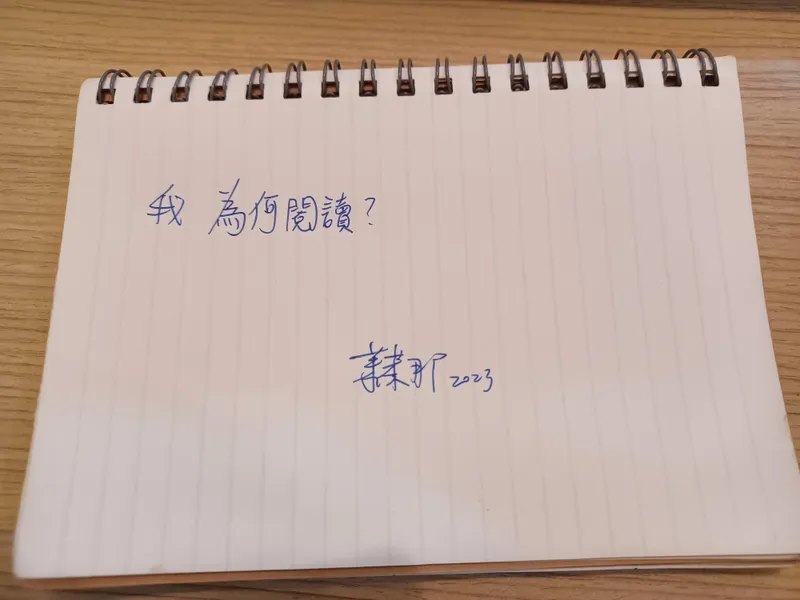 我 為何閱讀?
2023